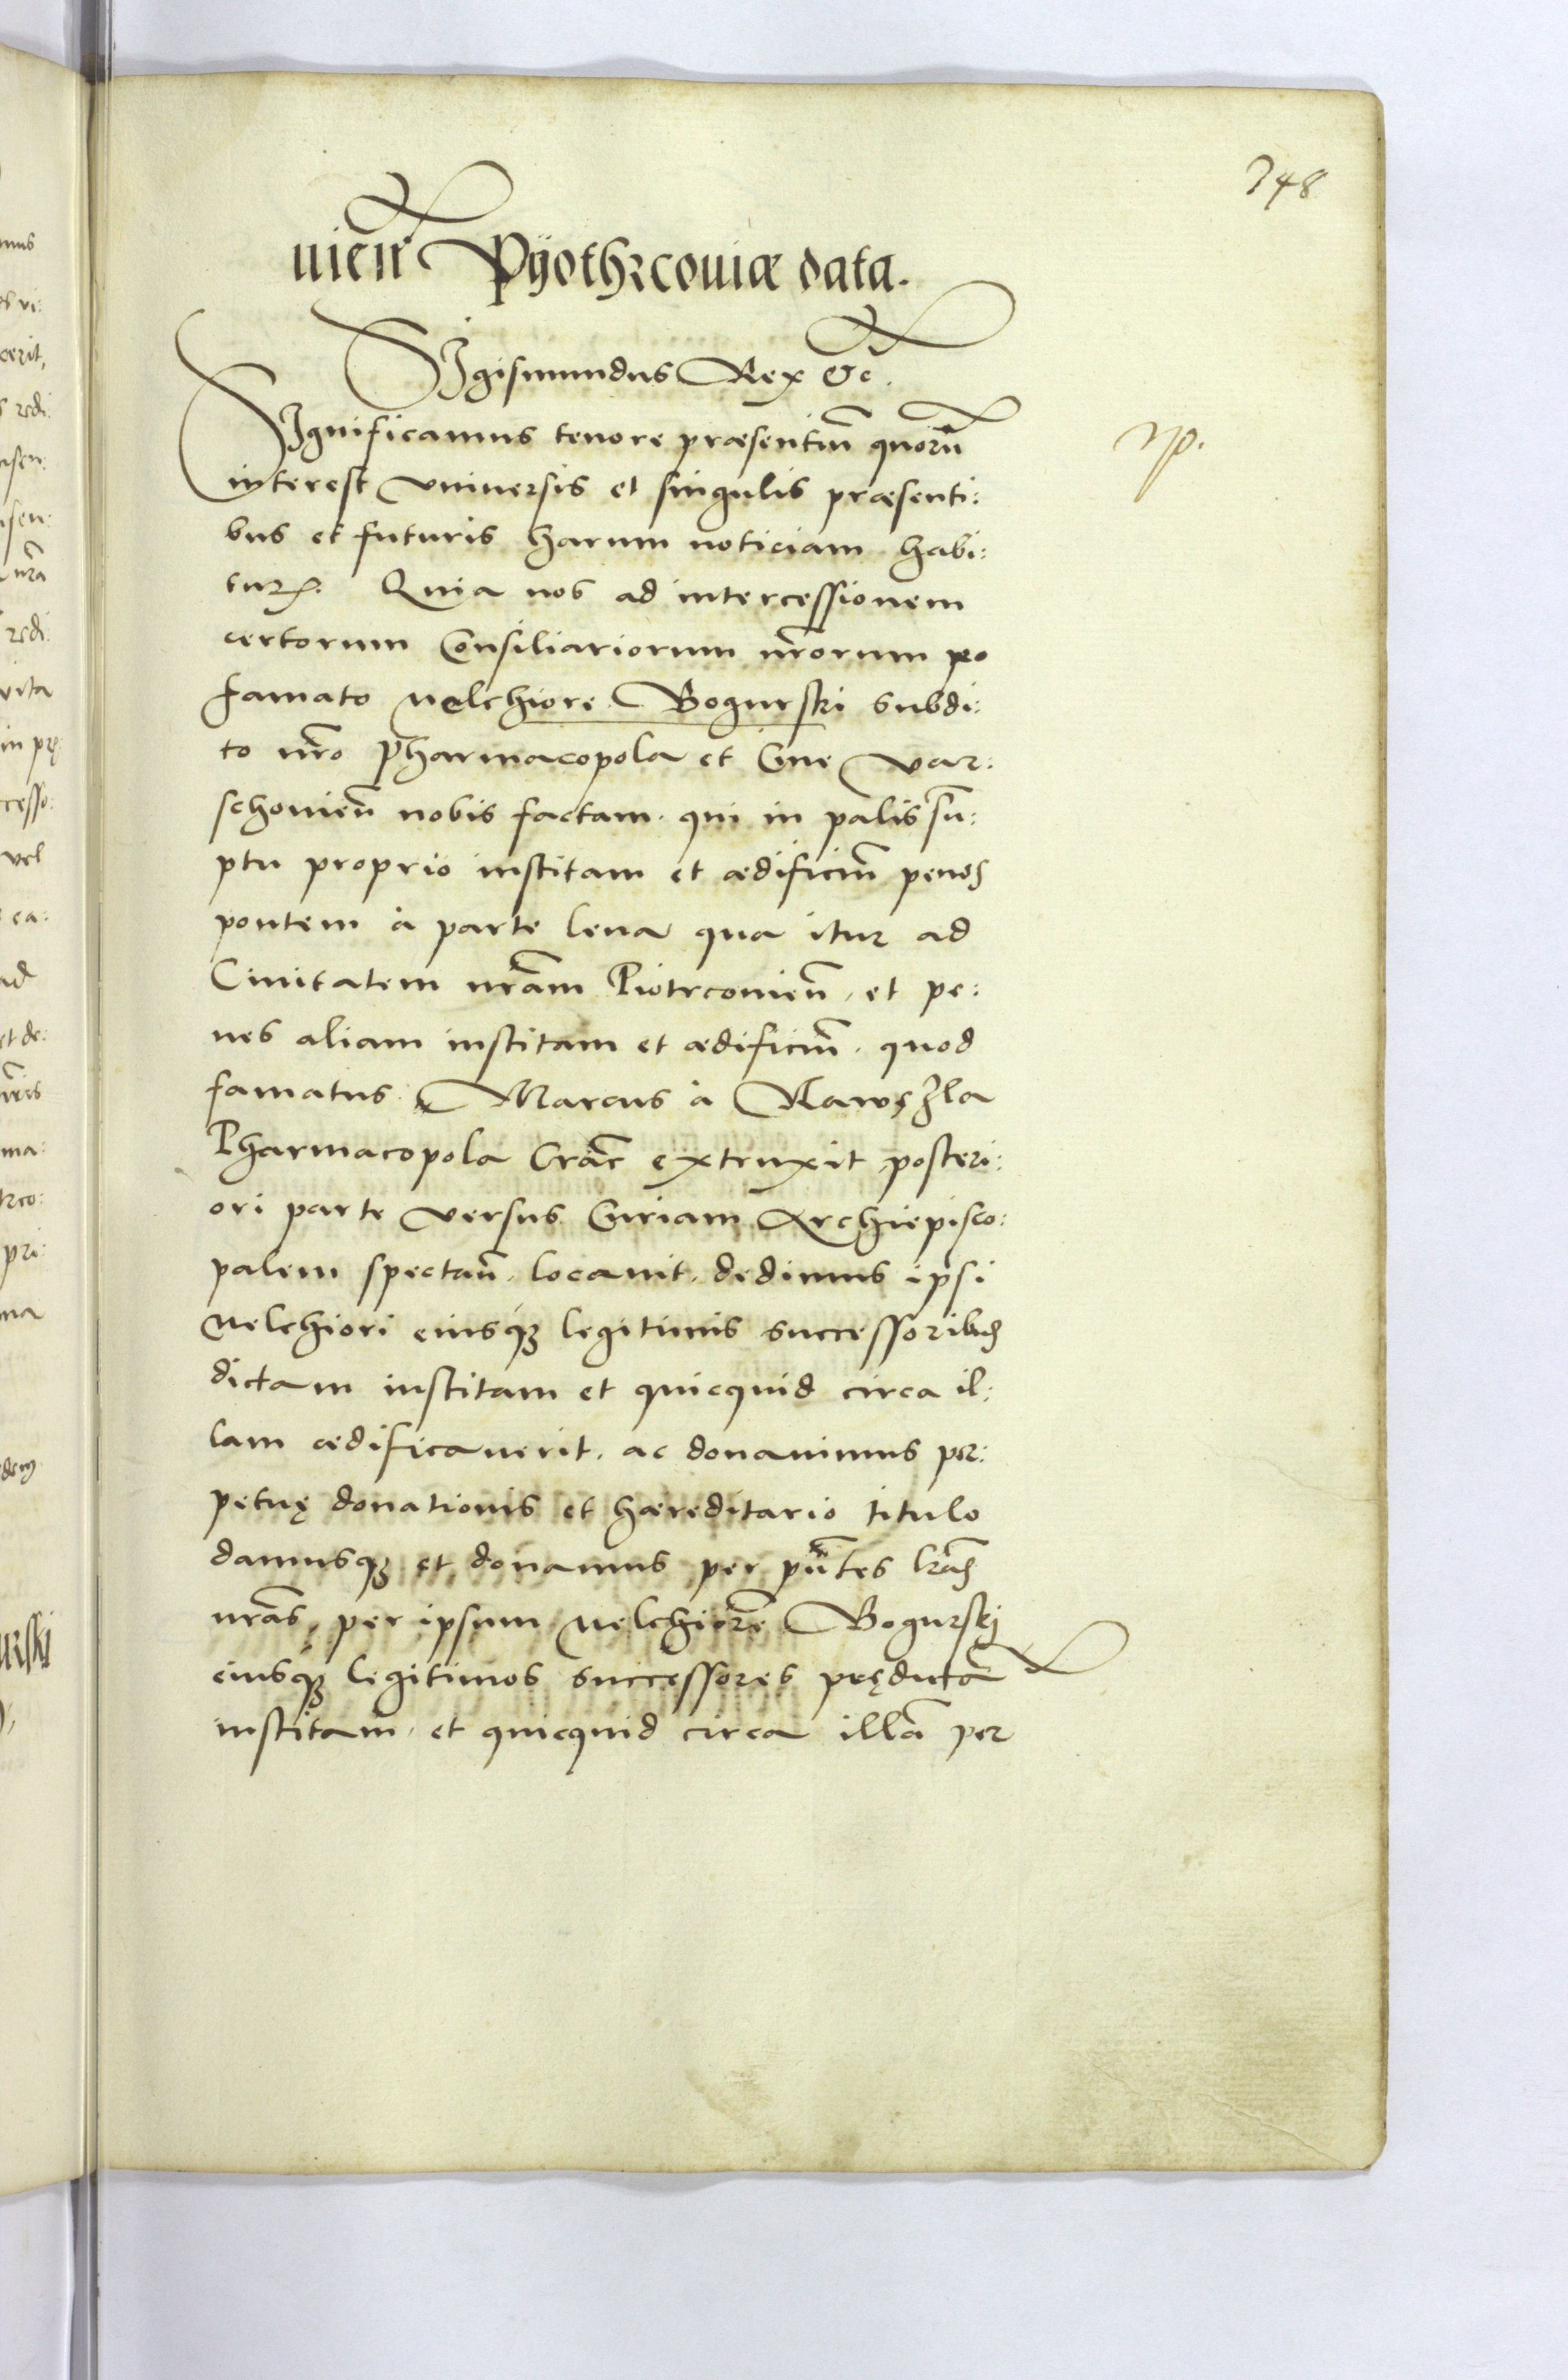 348
uień Pÿothrcouiæ data.
SIgismundus Rex &c̃.
SIgnificamus tenore præsentiũ quorũ
interest vniuersis et singulis præsenti:
bus et futuris harum noticiam habi:
turꝝ. Quia nos ad intercessionem
certorum Consiliariorum nr̃orum pro
famato Melchiore Bogurski subdi:
to nr̃o Pharmacopola et Ciue Var:
schouieñ nobis factam. qui in palis sũ:
ptu proprio institam et ædificiũ penes
pontem à parte leua qua itur ad
Ciuitatem nr̃am Piotrcouieñ, et pe:
nes aliam institam et ædificiũ. quod
famatus Marcus à
Pharmacopola Crac̃ extruxit posteri:
ori parte versus Curiam Archiepisco:
palem spectañ. locauit. dedimus ipsi
Melchiori eiusqꝫ legitimis successoribus
dictam institam et quicquid circa il:
lam ædificauerit. ac donauimus per:
petuę donationis et hæreditario titulo
damusqꝫ et donamus per pñtes lr̃as
nr̃as, per ipsum Melchiorẽ Bogurskj
eiusqꝫ legitimos successores prędictã
institam, et quicquid circa illã per